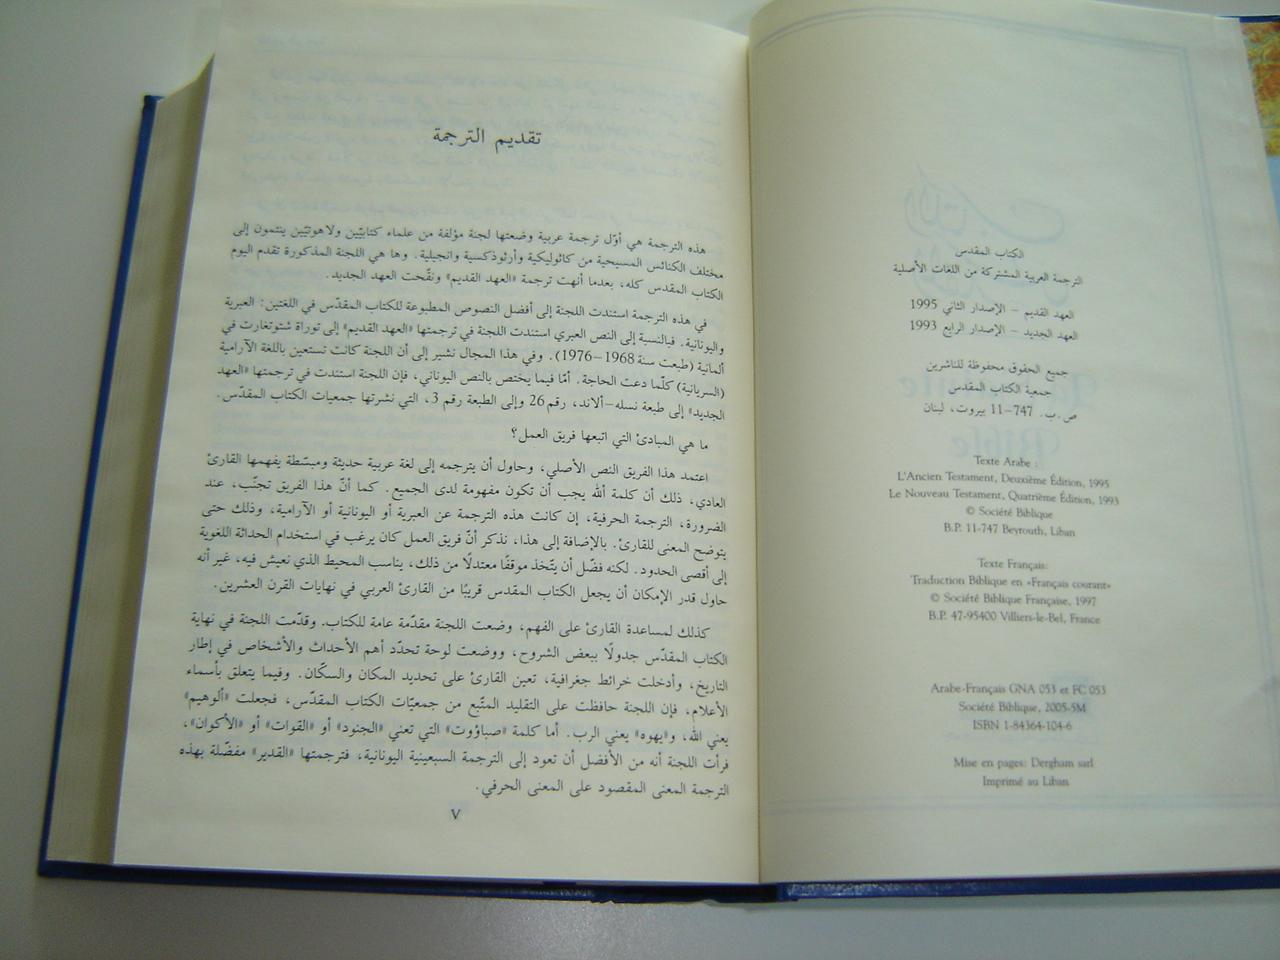 الكتاب المقدس
الترجمة العربية المشتركة من اللغات الأصلية
العهد القديم – الإصدار الثاني 1995
العهد الجديد – الإصدار الرابع 1993
جميع الحقوق محفوظة للناشرين
جمعية الكتاب المقدس
ص.ب. 747–11 بيروت، لبنان
Texte Arabe :
L'Ancien Testament, Deuxième Édition, 1995
Le Nouveau Testament, Quatrième Édition, 1993
© Société Biblique
B.P. 11-747 Beyrouth, Liban
Texte Français:
Traduction Biblique en «Français courant»
© Société Biblique Française, 1997
B.P. 47-95400 Villiers-le-Bel, France
Arabe-Français GNA 053 et FC 053
Société Biblique, 2005-5M
ISBN 1-84364-104-6
Mise en pages: Dergham sarl
Imprimé au Liban
تقديم الترجمة
هذه الترجمة هي أوّل ترجمة عربية وضعتها لجنة مؤلفة من علماء كتابيّين ولاهوتيّين ينتمون إلى
مختلف الكنائس المسيحية من كاثوليكية وأرثوذكسية وانجيلية. وها هي اللجنة المذكورة تقدم اليوم
الكتاب المقدس كله، بعدما أنهت ترجمة «العهد القديم» ونقّحت العهد الجديد.
في هذه الترجمة استندت اللجنة إلى أفضل النصوص المطبوعة للكتاب المقدّس في اللغتين: العبرية
واليونانية. فبالنسبة إلى النص العبري استندت اللجنة في ترجمتها «العهد القديم» إلى توراة شتوتغارت في
ألمانية (طبعت سنة 1968–1976). وفي هذا المجال نشير إلى أن اللجنة كانت تستعين باللغة الآرامية
(السريانية) كلّما دعت الحاجة. أمّا فيما يختص بالنص اليوناني، فإن اللجنة استندت في ترجمتها «العهد
الجديد» إلى طبعة نسله–ألاند، رقم 26 وإلى الطبعة رقم 3، التي نشرتها جمعيات الكتاب المقدّس.
ما هي المبادئ التي اتبعها فريق العمل؟
اعتمد هذا الفريق النص الأصلي، وحاول أن يترجمه إلى لغة عربية حديثة ومبسّطة يفهمها القارئ
العادي، ذلك أن كلمة الله يجب أن تكون مفهومة لدى الجميع. كما أنّ هذا الفريق تجنّب، عند
الضرورة، الترجمة الحرفية، إن كانت هذه الترجمة عن العبرية أو اليونانية أو الآرامية، وذلك حتى
يتوضح المعنى للقارئ. بالإضافة إلى هذا، نذكر أنّ فريق العمل كان يرغب في استخدام الحداثة اللغوية
إلى أقصى الحدود. لكنه فضّل أن يتّخذ موقفًا معتدلًا من ذلك، يناسب المحيط الذي نعيش فيه، غير أنه
حاول قدر الإمكان أن يجعل الكتاب المقدس قريبًا من القارئ العربي في نهايات القرن العشرين.
كذلك لمساعدة القارئ على الفهم، وضعت اللجنة مقدّمة عامة للكتاب. وقدّمت اللجنة في نهاية
الكتاب المقدّس جدولًا ببعض الشروح، ووضعت لوحة تحدّد أهم الأحداث والأشخاص في إطار
التاريخ، وأدخلت خرائط جغرافية، تعين القارئ على تحديد المكان والسكّان. وفيما يتعلق بأسماء
الأعلام، فإن اللجنة حافظت على التقليد المتّبع من جمعيّات الكتاب المقدّس، فجعلت «ألوهيم»
يعني الله، و«يهوه» يعني الرب. أما كلمة «صباؤوت» التي تعني «الجنود» أو «القوات» أو «الأكوان»،
فرأت اللجنة أنه من الأفضل أن تعود إلى الترجمة السبعينية اليونانية، فترجمتها «القدير» مفضّلة بهذه
الترجمة المعنى المقصود على المعنى الحرفي.
V